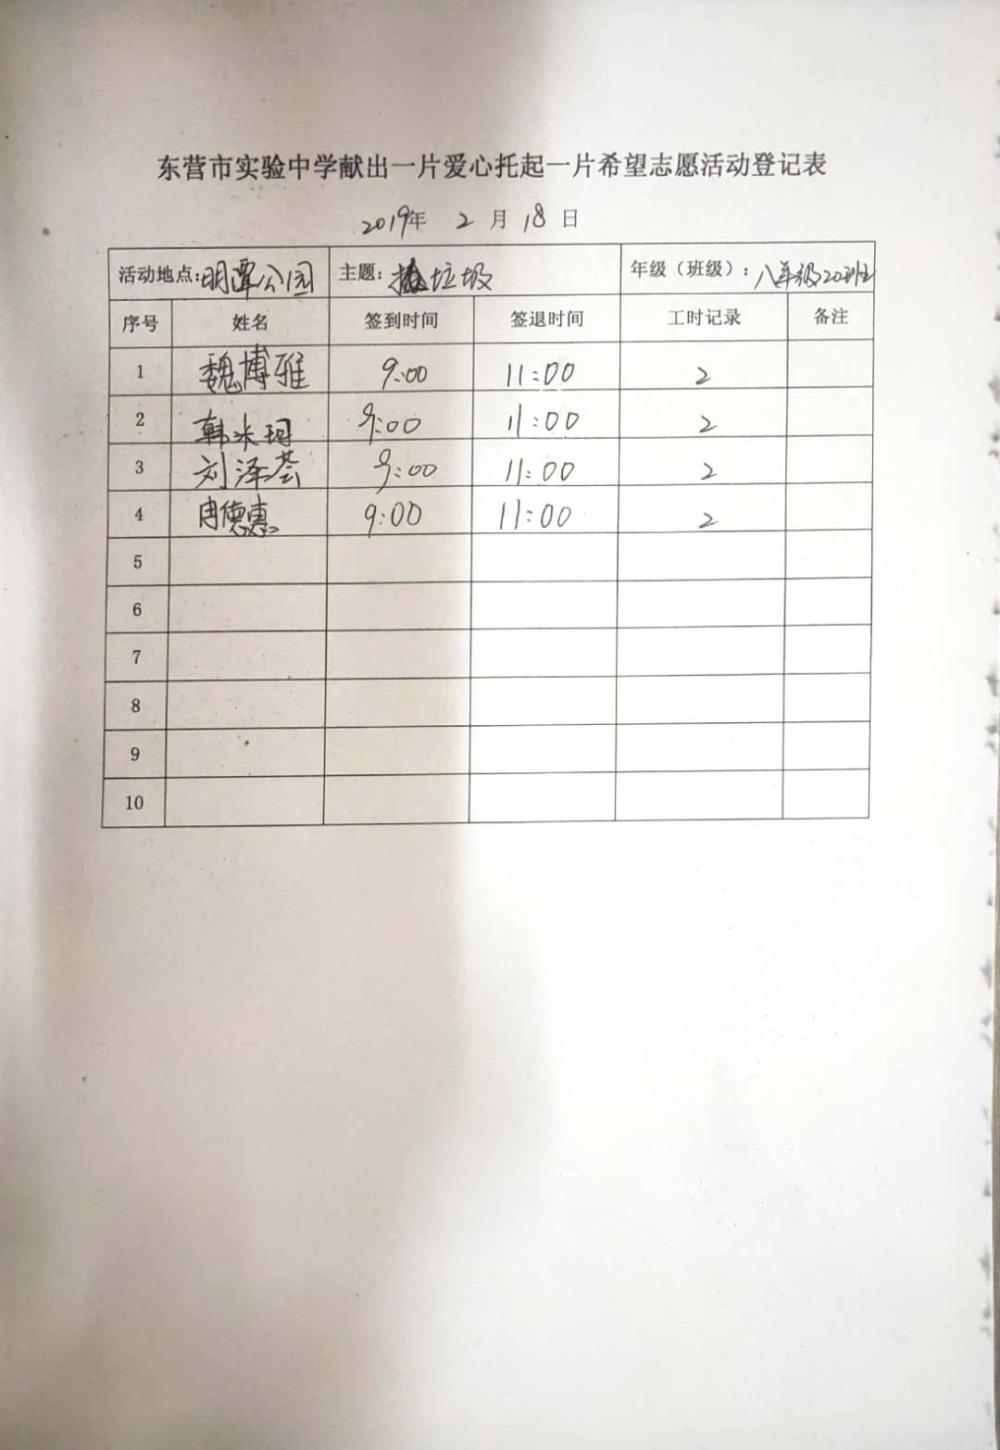 东营市实验中学献出一片爱心托起一片希望志愿活动登记表
2019年 2 月 18 日
活动地点:明潭公园 主题: 垃圾 年级（班级）: 八年级20班
序号 姓名 签到时间 签退时间 工时记录 备注
1 魏博雅 9:00 11:00 2
2 韩米珂 9:00 11:00 2
3 刘泽荟 9:00 11:00 2
4 冉德惠 9:00 11:00 2
5
6
7
8
9
10